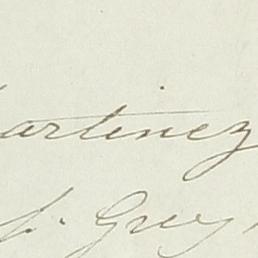 artinez
Grey